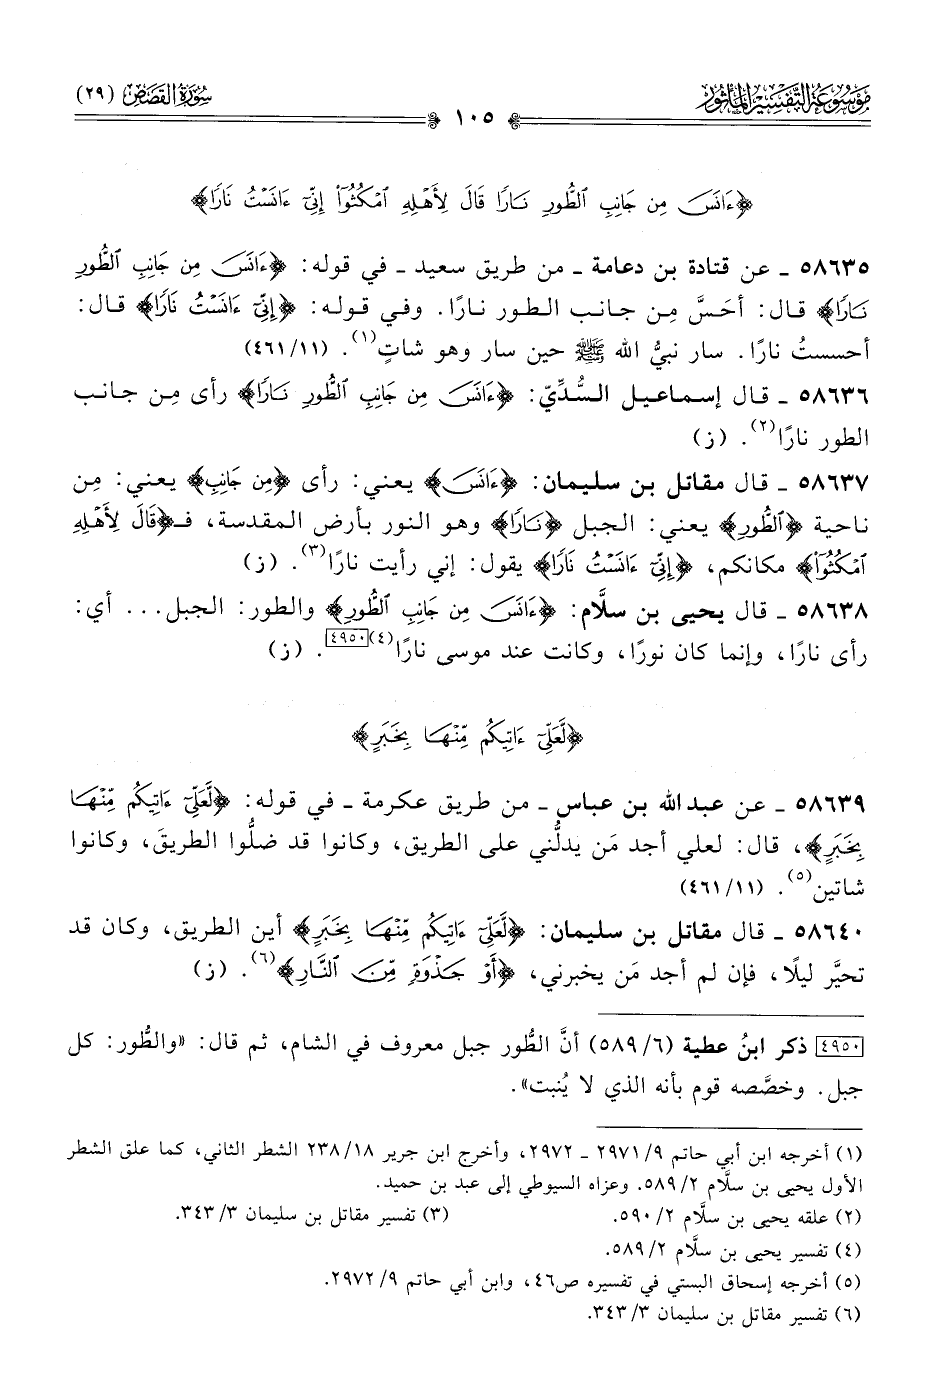 مَوْسُوعَةُ التَّفْسِيْرِ المَأْثُوْر
١٠٥
سُورَةُ القَصَصِ (٢٩)
﴿ءَانَسَ مِن جَانِبِ ٱلطُّورِ نَارًا قَالَ لِأَهْلِهِ ٱمْكُثُوٓاْ إِنِّيٓ ءَانَسْتُ نَارًا﴾
٥٨٦٣٥ ـ عن قتادة بن دعامة ـ من طريق سعيد ـ في قوله: ﴿ءَانَسَ مِن جَانِبِ ٱلطُّورِ
نَارًا﴾ قال: أحَسَّ مِن جانب الطور نارًا. وفي قوله: ﴿إِنِّيٓ ءَانَسْتُ نَارًا﴾ قال:
أحسستُ نارًا. سار نبيُّ الله ﷺ حين سار وهو شاتٍ(١). (٤٦١/١١)
٥٨٦٣٦ ـ قال إسماعيل السُّدِّيّ: ﴿ءَانَسَ مِن جَانِبِ ٱلطُّورِ نَارًا﴾ رأى مِن جانب
الطور نارًا(٢). (ز)
٥٨٦٣٧ ـ قال مقاتل بن سليمان: ﴿ءَانَسَ﴾ يعني: رأى ﴿مِن جَانِبِ﴾ يعني: مِن
ناحية ﴿ٱلطُّورِ﴾ يعني: الجبل ﴿نَارًا﴾ وهو النور بأرض المقدسة، فـ﴿قَالَ لِأَهْلِهِ
ٱمْكُثُوٓاْ﴾ مكانكم، ﴿إِنِّيٓ ءَانَسْتُ نَارًا﴾ يقول: إني رأيت نارًا(٣). (ز)
٥٨٦٣٨ ـ قال يحيى بن سلَّام: ﴿ءَانَسَ مِن جَانِبِ ٱلطُّورِ﴾ والطور: الجبل... أي:
رأى نارًا، وإنما كان نورًا، وكانت عند موسى نارًا(٤)[٤٩٥٠]. (ز)
﴿لَّعَلِّيٓ ءَاتِيكُم مِّنْهَا بِخَبَرٍ﴾
٥٨٦٣٩ ـ عن عبد الله بن عباس ـ من طريق عكرمة ـ في قوله: ﴿لَّعَلِّيٓ ءَاتِيكُم مِّنْهَا
بِخَبَرٍ﴾، قال: لعلي أجد مَن يدلُّني على الطريق، وكانوا قد ضلُّوا الطريقَ، وكانوا
شاتين(٥). (٤٦١/١١)
٥٨٦٤٠ ـ قال مقاتل بن سليمان: ﴿لَّعَلِّيٓ ءَاتِيكُم مِّنْهَا بِخَبَرٍ﴾ أين الطريق، وكان قد
تحيَّر ليلًا، فإن لم أجد مَن يخبرني، ﴿أَوْ جَذْوَةٍ مِّنَ ٱلنَّارِ﴾(٦). (ز)
[٤٩٥٠] ذكر ابنُ عطية (٥٨٩/٦) أنَّ الطُّور جبل معروف في الشام، ثم قال: «والطُّور: كل
جبل. وخصَّصه قوم بأنه الذي لا يُنبت».
(١) أخرجه ابن أبي حاتم ٢٩٧١/٩ ـ ٢٩٧٢، وأخرج ابن جرير ٢٣٨/١٨ الشطر الثاني، كما علق الشطر
الأول يحيى بن سلَّام ٥٨٩/٢. وعزاه السيوطي إلى عبد بن حميد.
(٢) علقه يحيى بن سلَّام ٥٩٠/٢. (٣) تفسير مقاتل بن سليمان ٣٤٣/٣.
(٤) تفسير يحيى بن سلَّام ٥٨٩/٢.
(٥) أخرجه إسحاق البستي في تفسيره ص٤٦، وابن أبي حاتم ٢٩٧٢/٩.
(٦) تفسير مقاتل بن سليمان ٣٤٣/٣.